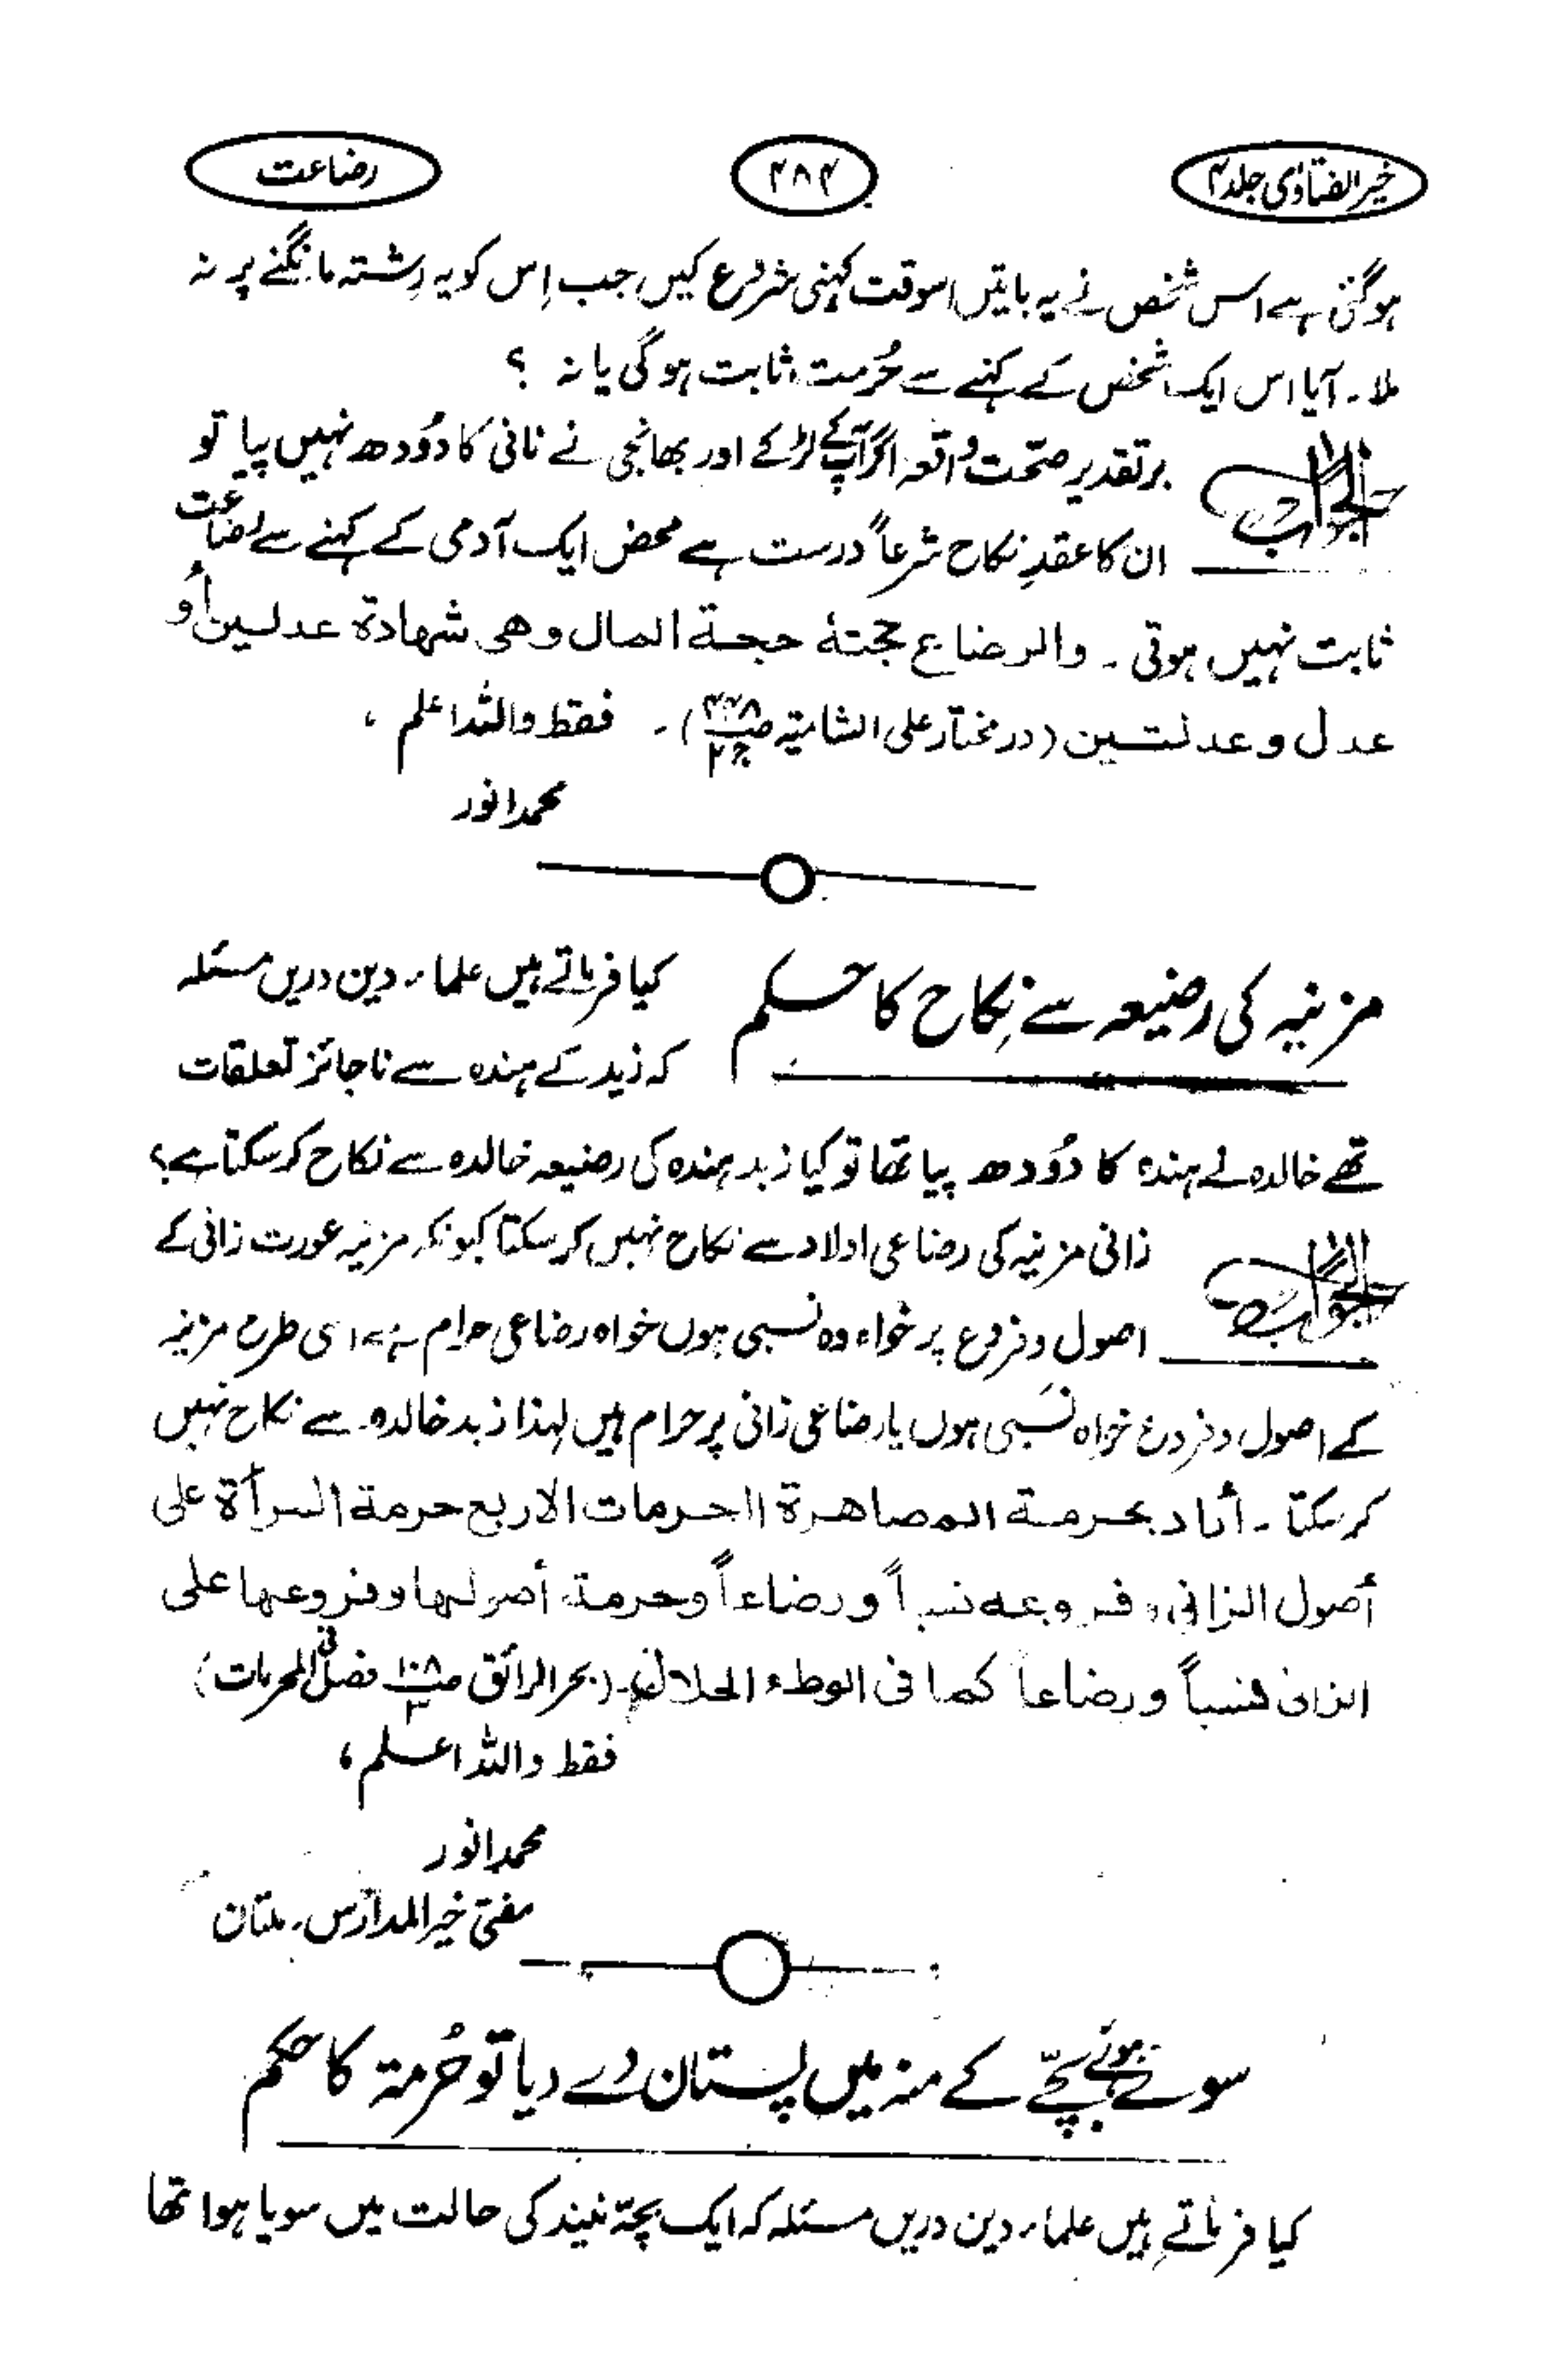 خیر الفتاوٰی جلد ۴
۴۸۴
رضاعت
ہوگئی ہے اس شخص نے یہ باتیں اسوقت کہنی شروع کیں جب اِس کو یہ رِشتہ مانگنے پر نہ
ملا۔ آیا اس ایک شخص کے کہنے سے حُرمت ثابت ہوگی یا نہ ؟
الجواب
برتقدیر صحّت واقعہ اگر آپ کے لڑکے اور بھانجی نے نانی کا دُودھ نہیں پیا تو
ان کا عقدِ نکاح شرعاً درست ہے محض ایک آدمی کے کہنے سے رضاعت
ثابت نہیں ہوتی ۔ والرضاع حجتهٗ حجة المال وهی شهادة عدلین أو
عدل وعدلتین (در مختار علی الشامیۃ ص ج۲)۔ فقط واللہ اعلم ،
محمد انور
مزنیہ کی رضیعہ سے نِکاح کا حکم
کیا فرماتے ہیں علماء دین دریں مسئلہ
کہ زید کے ہندہ سے ناجائز تعلقات
تھے خالدہ نے ہندہ کا دُودھ پیا تھا تو کیا زید ہندہ کی رضیعہ خالدہ سے نکاح کر سکتا ہے؟
الجواب
زانی مزنیہ کی رضاعی اولاد سے نکاح نہیں کر سکتا کیونکہ مزنیہ عورت زانی کے
اصول و فروع پر خواہ وہ نسبی ہوں خواہ رضاعی حرام ہے اسی طرح مزنیہ
کے اصول و فروع خواہ نَسبی ہوں یا رضاعی زانی پر حرام ہیں لہذا زید خالدہ سے نکاح نہیں
کر سکتا ۔ أراد بحرمة المصاهرة الحرمات الاربع حرمة المرأة علی
أصول الزانی وفروعه نسباً ورضاعاً وحرمة أصولها وفروعها علی
الزانی نسباً ورضاعاً کما فی الوطء الحلال (بحر الرائق ص۱۰۸ فصل فی المحرمات)
فقط واللہ اعلم ،
محمد انور
مفتی خیر المدارس۔ ملتان
سوئے ہوئے بچّے کے منہ میں پستان دے دیا تو حُرمۃ کا حکم
کیا فرماتے ہیں علماء دین دریں مسئلہ کہ ایک بچّہ نیند کی حالت میں سویا ہوا تھا